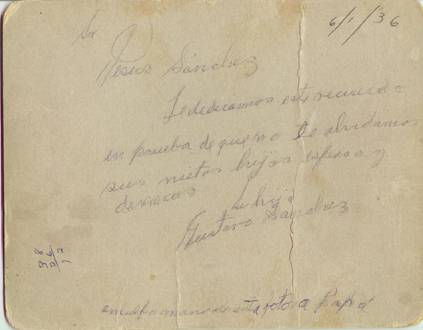 6/1/36
Sr
Jesus Sanchez
Le dedicamos este recuerdo
en prueba de que no te olvidamos
sus nietos hijos esposa y
Su hijo
Gustavo Sanchez
mano de esta foto a Papá